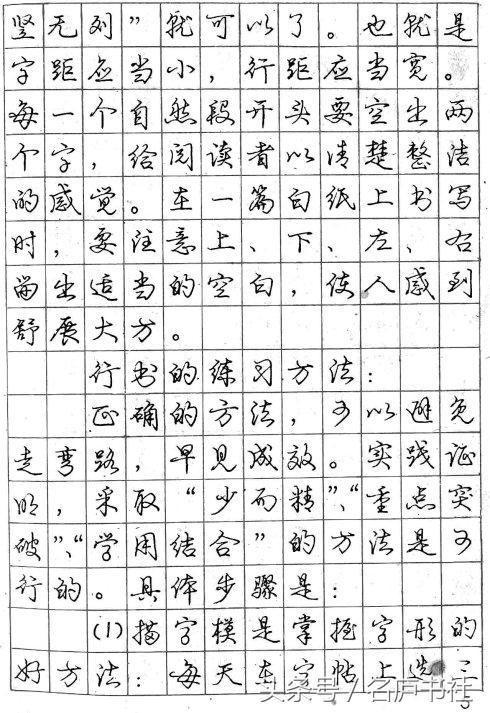 竖无列”就可以了。也就是
字距应当小，行距应当宽。
每一个自然段开头要空出两
个字，给阅读者以清楚整洁
的感觉。在一篇白纸上书写
时，要注意上、下、左、右
留出适当的空白，使人感到
舒展大方。
行书的练习方法：
正确的方法，可以避免
走弯路，早见成效。实践证
明，采取“少而精”、“重点突
破”、“学用结合”的方法是可
行的。具体步骤是：
(1)描字模是掌握字形的
好方法：每天在字帖上选三
头条号/名庐书社
3